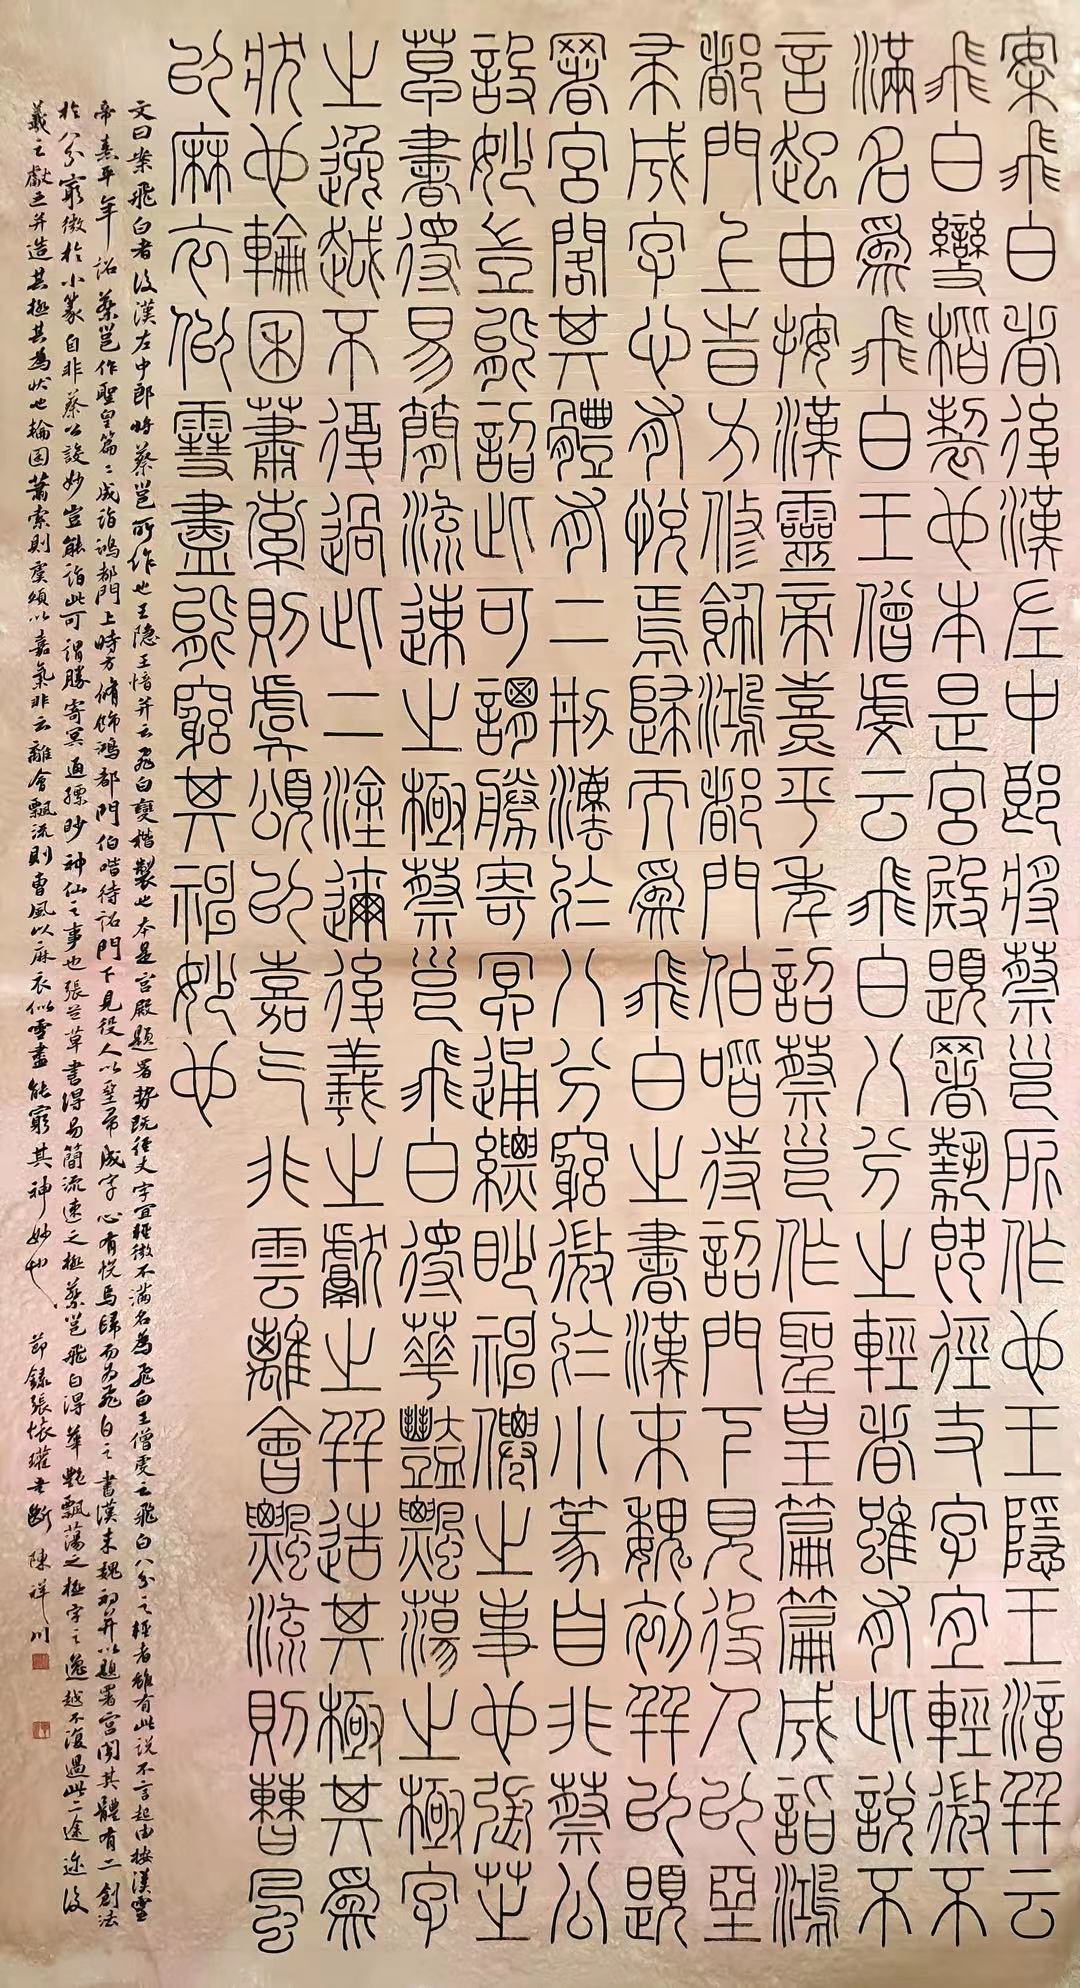 案飛白者後漢左中郎將蔡邕所作也王隱王愔并云
飛白變楷製也本是宮殿題署勢既徑丈字宜輕微不
滿名為飛白王僧虔云飛白八分之輕者雖有此說不
言起由按漢靈帝熹平年詔蔡邕作聖皇篇篇成詣鴻
都門上時方修飾鴻都門伯喈待詔門下見役人以堊
帚成字心有悅焉歸而為飛白之書漢末魏初并以題
署宮閣其體有二刱法於八分窮微於小篆自非蔡公
設妙豈能詣此可謂勝寄冥通縹眇神僊之事也張芝
草書得易簡流速之極蔡邕飛白得華艷飄蕩之極字
之逸越不復過此二途邇後羲之獻之并造其極其為
狀也輪囷蕭索則虞頌以嘉气非雲離會飄流則曹風
以麻衣似雪盡能窮其神妙也
文曰案飛白者後漢左中郎將蔡邕所作也王隐王愔并云飛白變楷製也本是宮殿題署勢既徑丈字宜輕微不滿名為飛白王僧虔云飛白八分之輕者雖有此說不言起由按漢靈
帝熹平年詔蔡邕作聖皇篇〻成詣鴻都門上時方脩飾鴻都門伯喈待詔門下見役人以堊帚成字心有悅焉歸而為飛白之書漢末魏初并以題署宮閣其體有二創法
於八分窮微於小篆自非蔡公設妙豈能詣此可謂勝寄冥通縹眇神仙之事也張芝草書得易簡流速之極蔡邕飛白得華艷飄蕩之極字之逸越不復過此二途迩後
羲之獻之并造其極其為狀也輪囷蕭索則虞頌以嘉氣非云離會飄流則曹風以麻衣似雪盡能窮其神妙也 節錄張懷瓘書斷 陳祥川